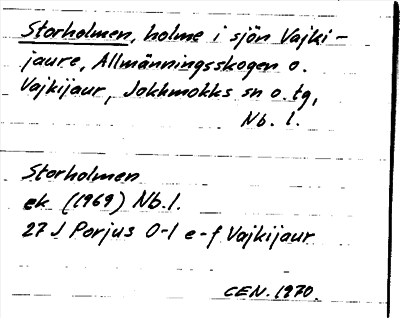 Storholmen, holme i sjön Vajki-
jaure, Allmänningsskogen o.
Vajkijaur, Jokkmokks sn o. tg,
Nb. l.
Storholmen
ek (1969) Nb. l.
27 J Porjus 0-1 e-f Vajkijaur
CEN. 1970.